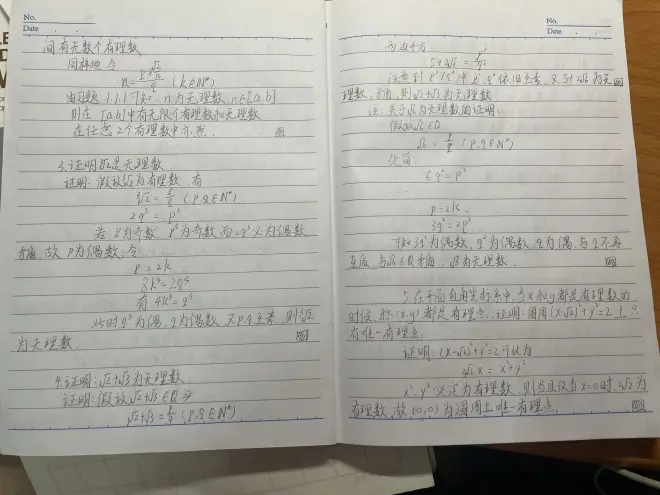 No.
Date
间有无数个有理数
同样地,令
n = (p + √2)/q (k∈N*)
由习题1.1.1可知 n为无理数, n∈[a.b]
则在[a.b]中有无限个有理数和无理数
在任意2个有理数中亦然.
3.证明∛2是无理数.
证明: 假设∛2为有理数. 有
∛2 = p/q (p.q∈N*)
2q³ = p³
若p为奇数 p³为奇数,而2q³必为偶数
矛盾 故p为偶数,令
p = 2k
8k³=2q³
有 4k³=q³
此时q³为偶,q为偶数. 又p.q互素,则∛2
为无理数.
4.证明:√2+√3为无理数
证明: 假设√2+√3∈Q
√2+√3 = p/q (p.q∈N*)
No.
Date
两边平方
5+2√6 = p²/q²
注意到 p²/q² 中 p².q²依旧互素, 又5+2√6为无
理数,矛盾,则√2+√3为无理数
注:关于√6为无理数的证明:
假设√6∈Q
√6 = p/q (p.q∈N*)
化简:
6q²=p²
p=2k.
3q²=2k²
可知3q²为偶数,q²为偶数,q为偶,与q不再
互质,与√6∈Q矛盾, √6为无理数.
5.在平面直角坐标系中,当x和y都是有理数的
时候,称(x.y)都是有理点.证明:圆周(x-√2)²+y²=2上只
有唯一有理点.
证明: (x-√2)²+y²=2可化为
2√2x = x²+y²
x².y²必定为有理数,则当且仅当x=0时,2√2为
有理数,故(0,0)为圆周上唯一有理点.